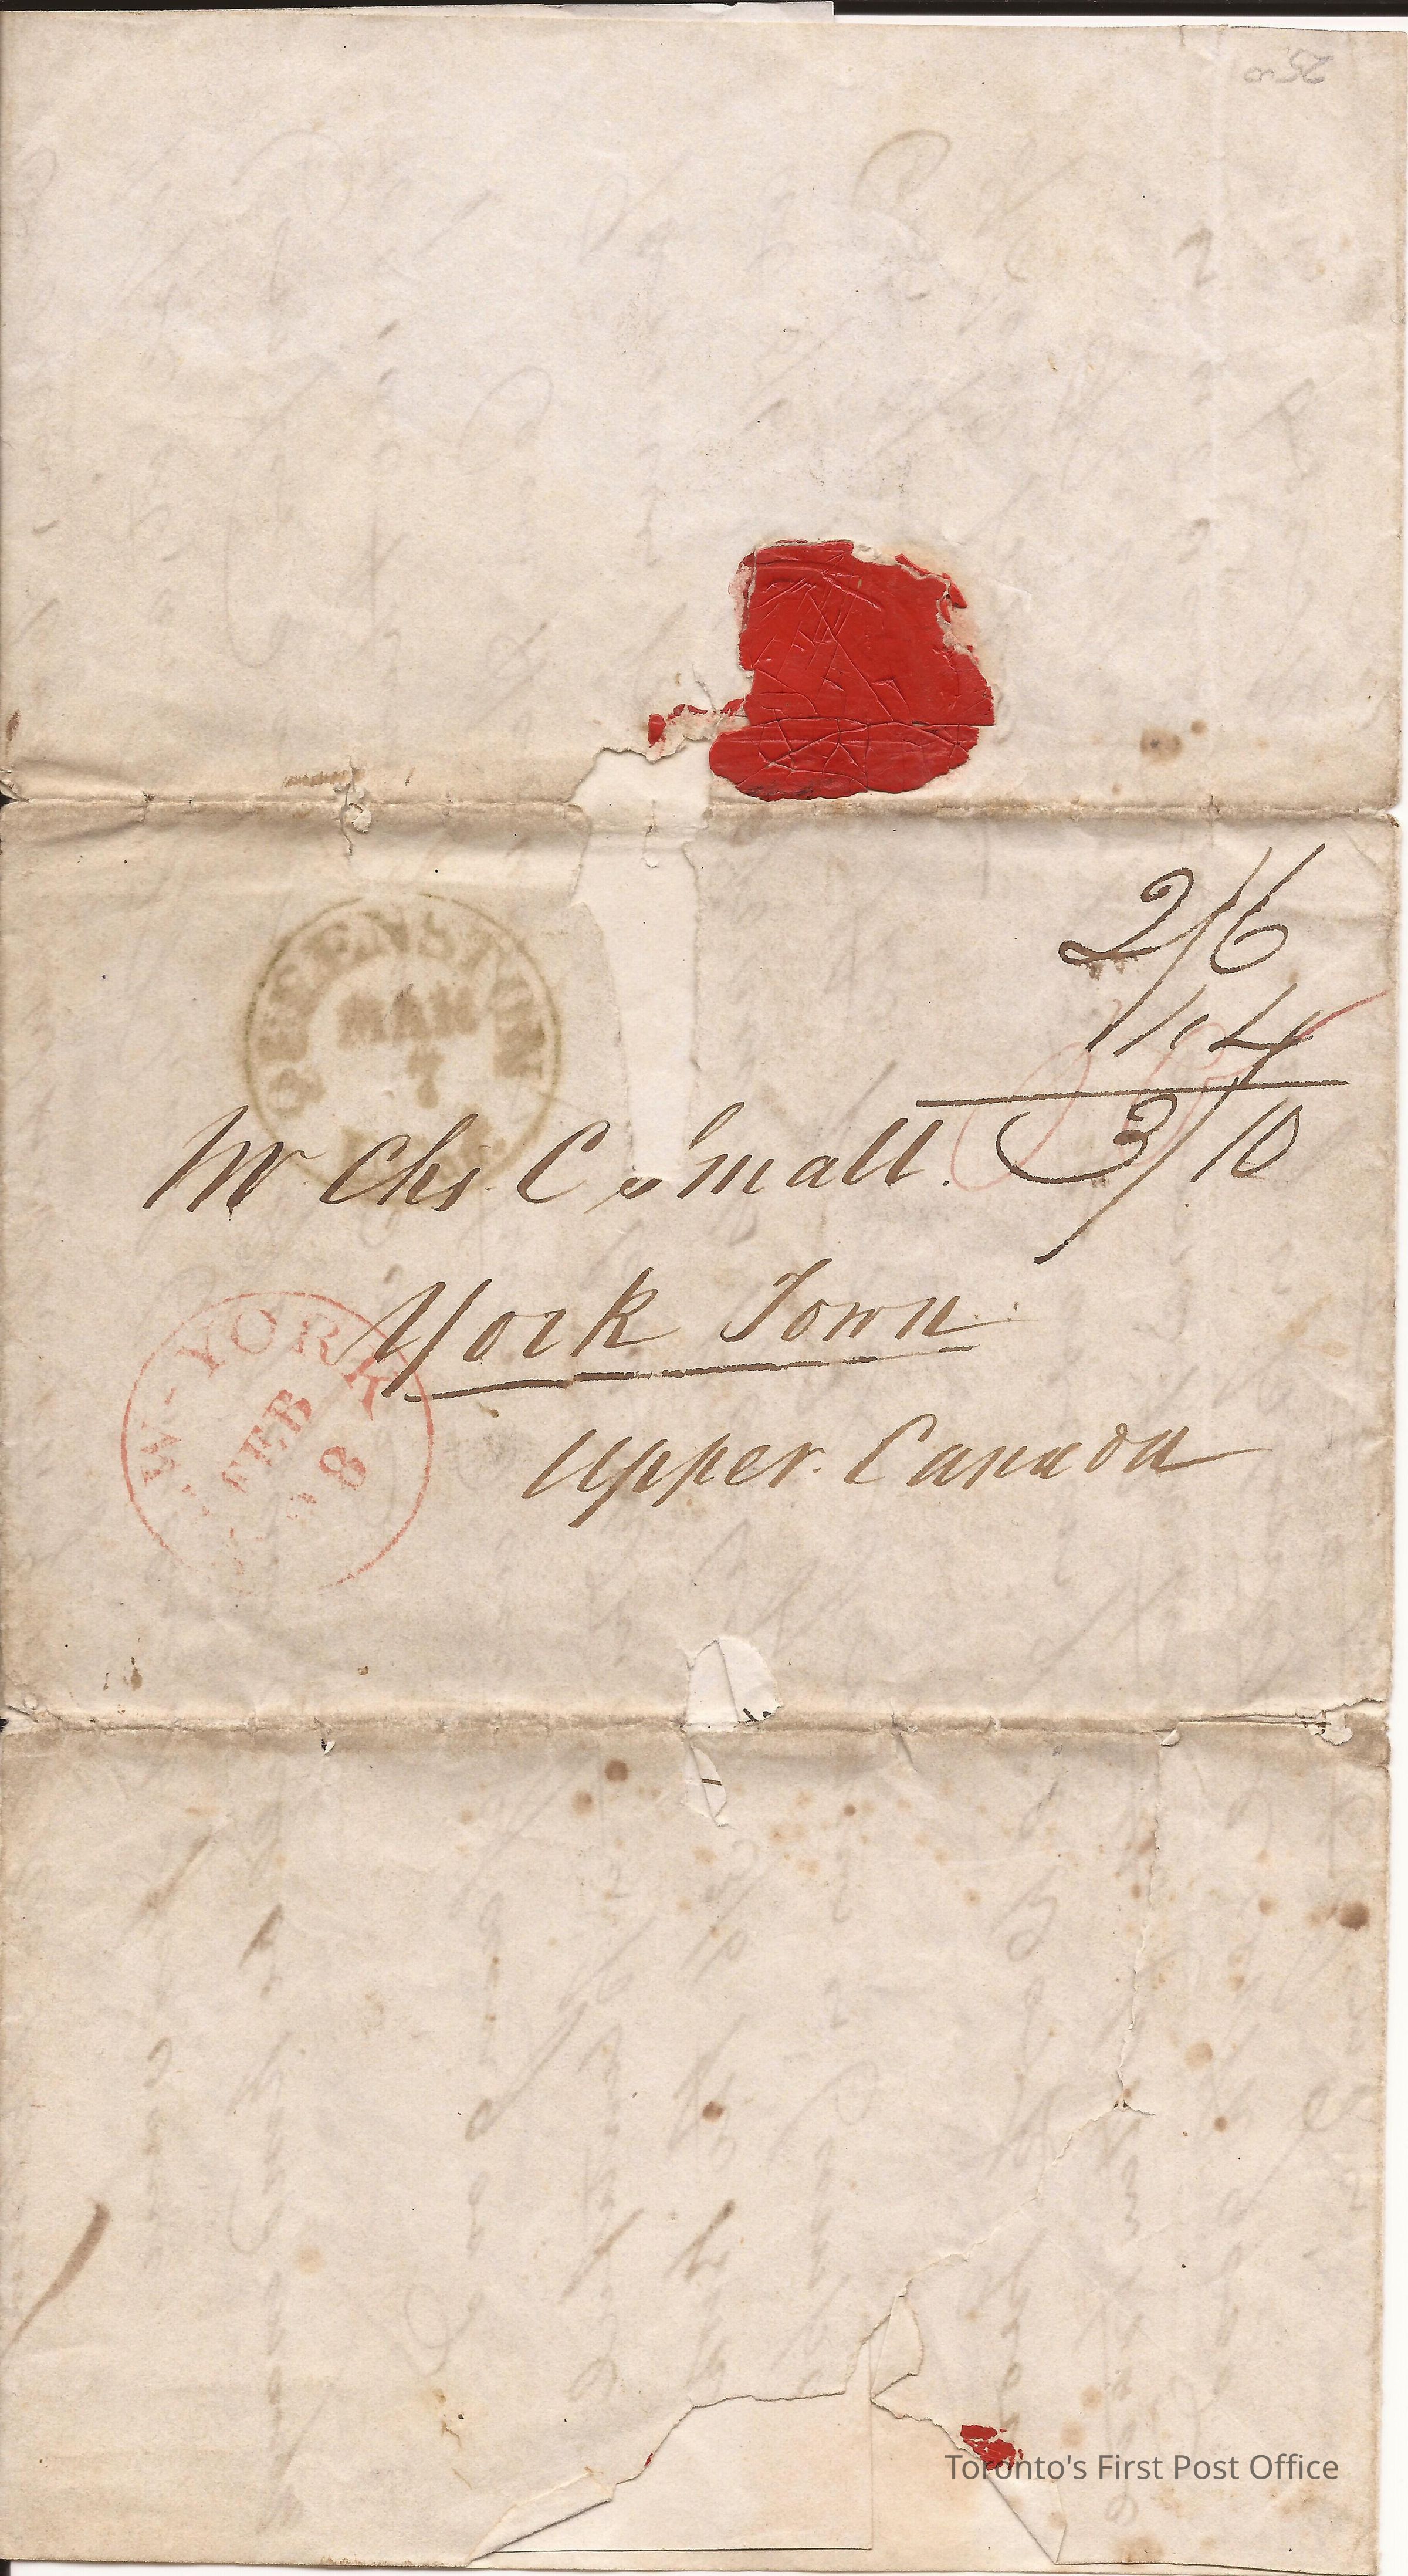 2/6
1/4
3/10
QUEENSTON
MAR
7
Mr Chs C Small.
York Town
W-YORK
FEB
8
Upper Canada
Toronto's First Post Office